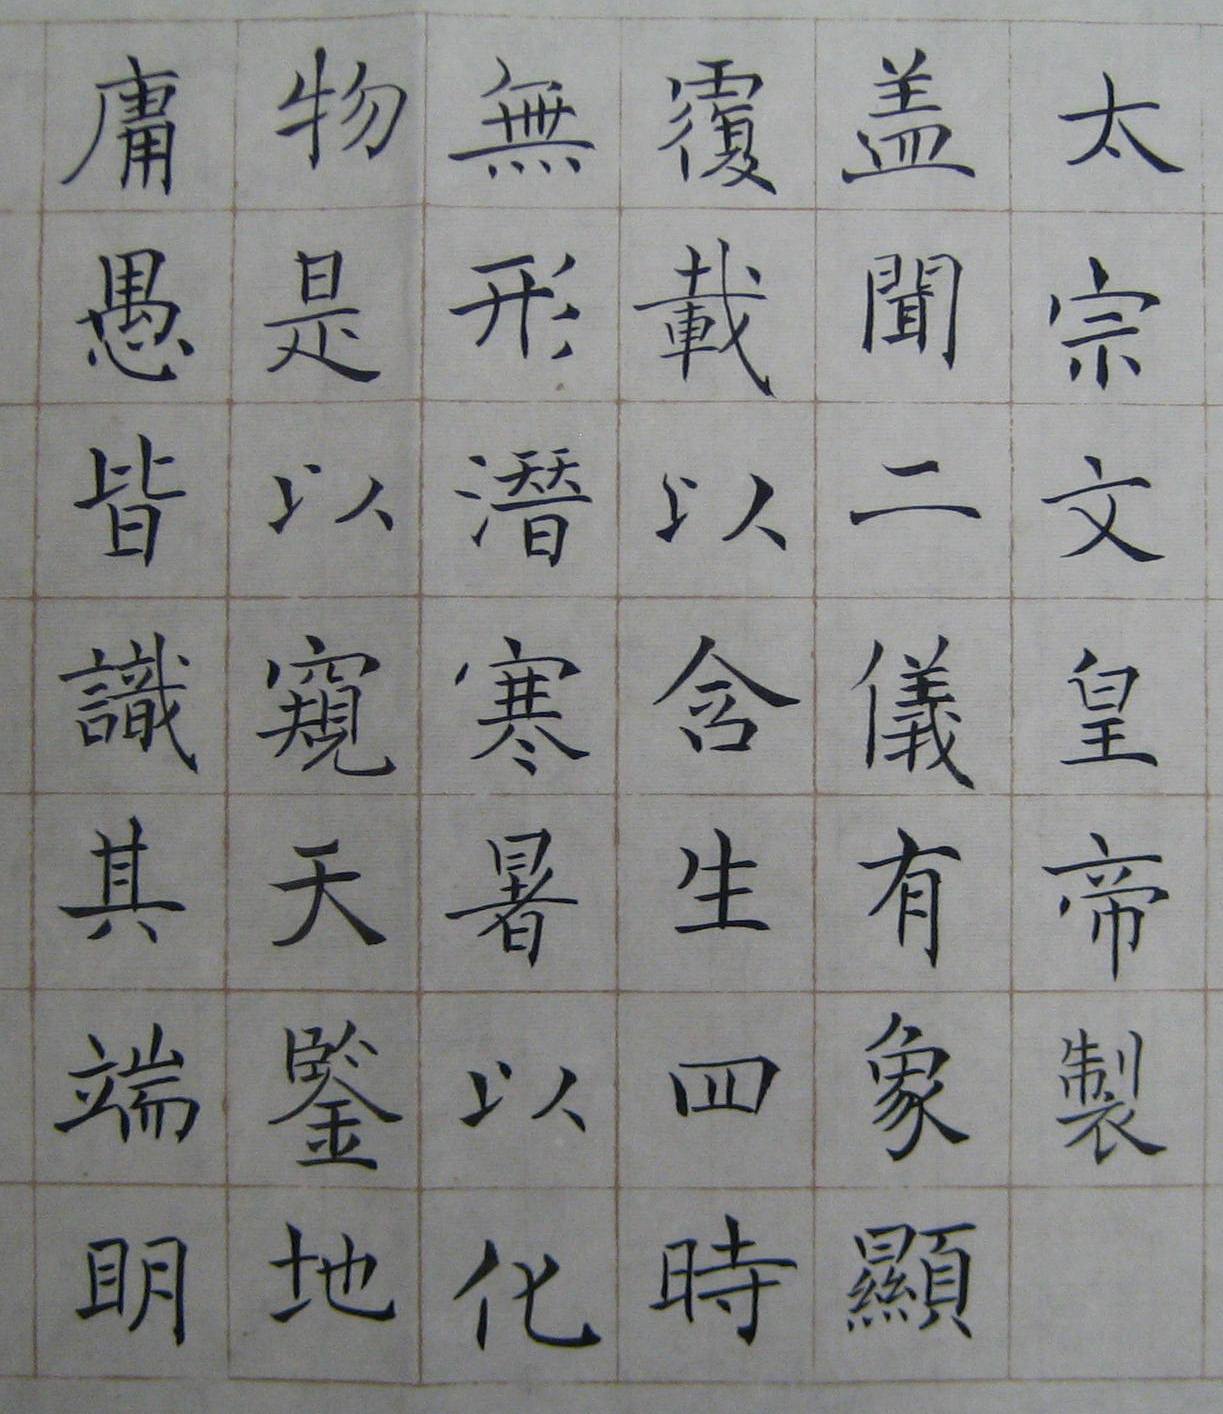 太宗文皇帝製
盖聞二儀有象顯
覆載以含生四時
無形潛寒暑以化
物是以窺天鑒地
庸愚皆識其端明